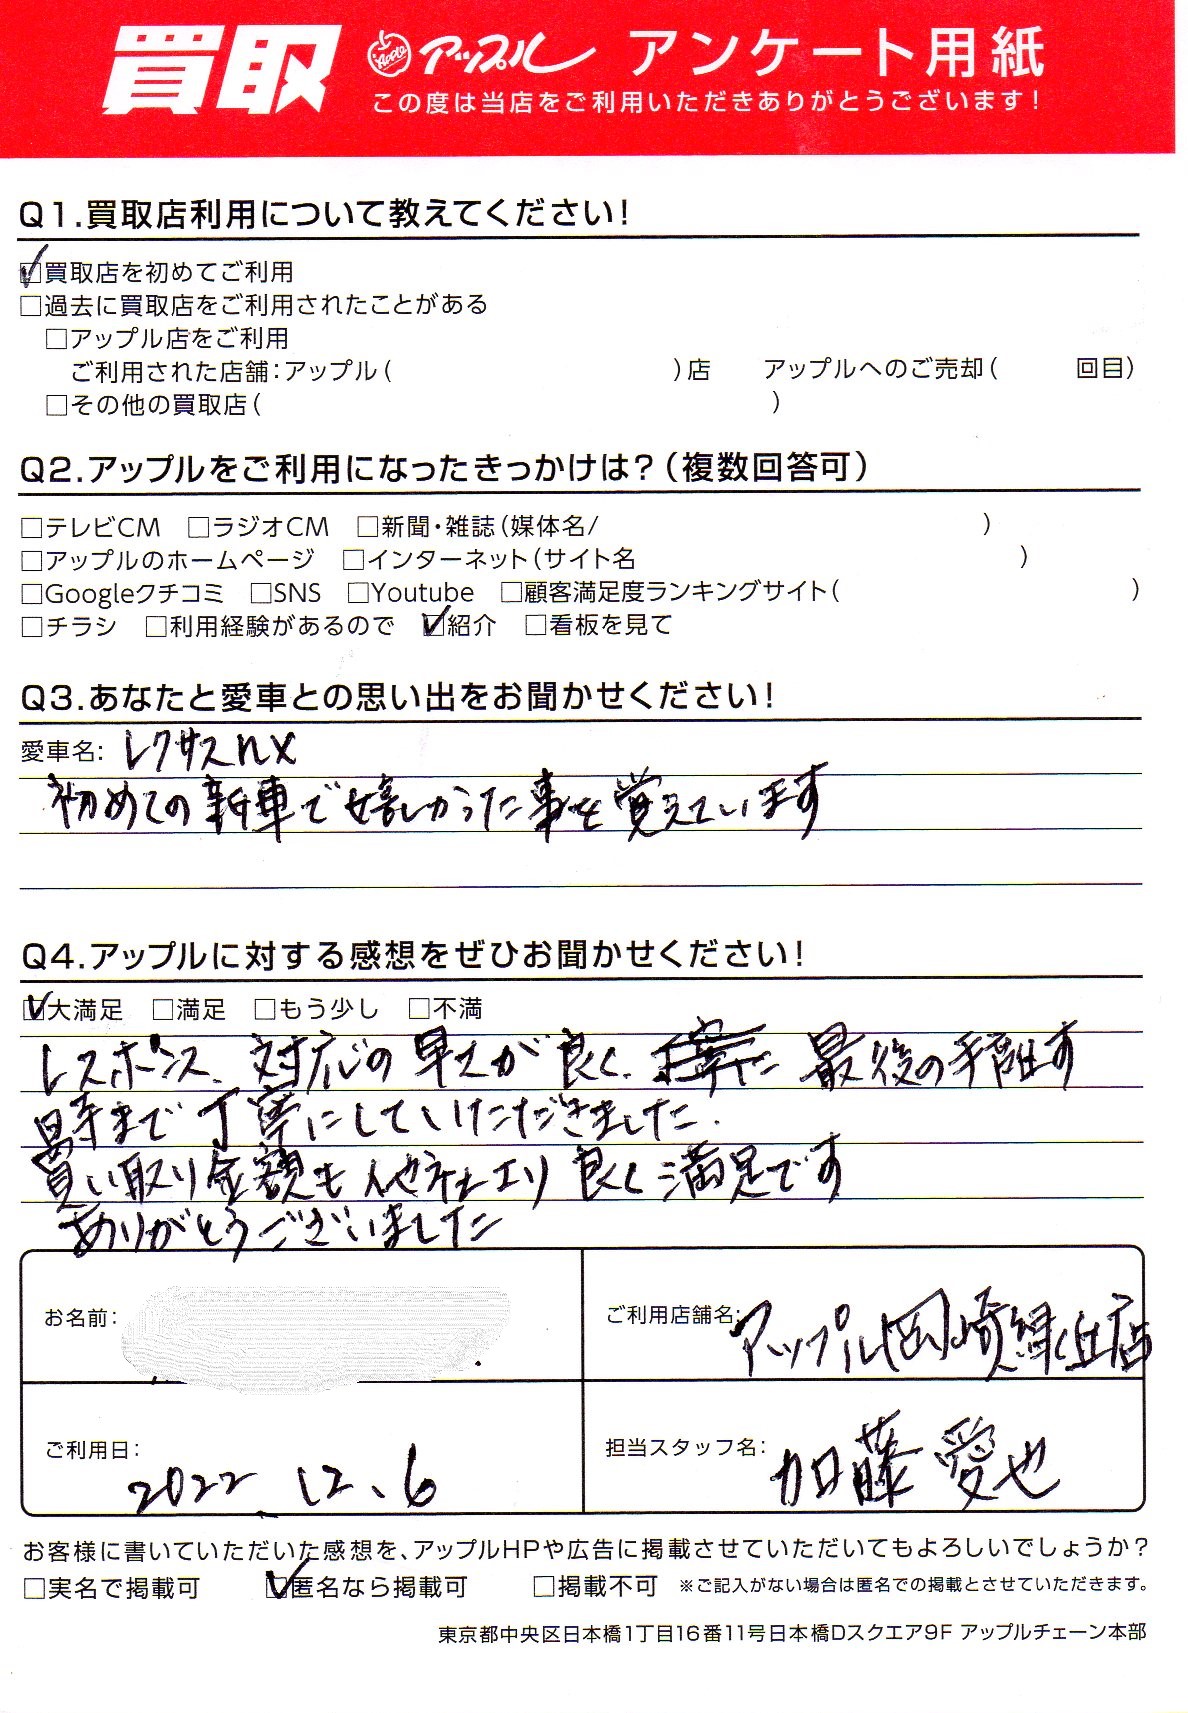 買取 Apple アップル アンケート用紙
この度は当店をご利用いただきありがとうございます!
Q1.買取店利用について教えてください!
☑買取店を初めてご利用
□過去に買取店をご利用されたことがある
□アップル店をご利用
ご利用された店舗:アップル( )店 アップルへのご売却( 回目)
□その他の買取店( )
Q2.アップルをご利用になったきっかけは?(複数回答可)
□テレビCM □ラジオCM □新聞・雑誌(媒体名/ )
□アップルのホームページ □インターネット(サイト名 )
□Googleクチコミ □SNS □Youtube □顧客満足度ランキングサイト( )
□チラシ □利用経験があるので ☑紹介 □看板を見て
Q3.あなたと愛車との思い出をお聞かせください!
愛車名: レクサスnx
初めての新車で嬉しかった事を覚えています
Q4.アップルに対する感想をぜひお聞かせください!
☑大満足 □満足 □もう少し □不満
レスポンス、対応の早さが良く、最後の手離す
時まで丁寧にしていただきました.
買い取り金額も他社より良く満足です
ありがとうございました
お名前: ご利用店舗名: アップル岡崎緑丘店
ご利用日: 2022.12.6 担当スタッフ名: 加藤愛也
お客様に書いていただいた感想を、アップルHPや広告に掲載させていただいてもよろしいでしょうか?
□実名で掲載可 ☑匿名なら掲載可 □掲載不可 ※ご記入がない場合は匿名での掲載とさせていただきます。
東京都中央区日本橋1丁目16番11号日本橋Dスクエア9F アップルチェーン本部